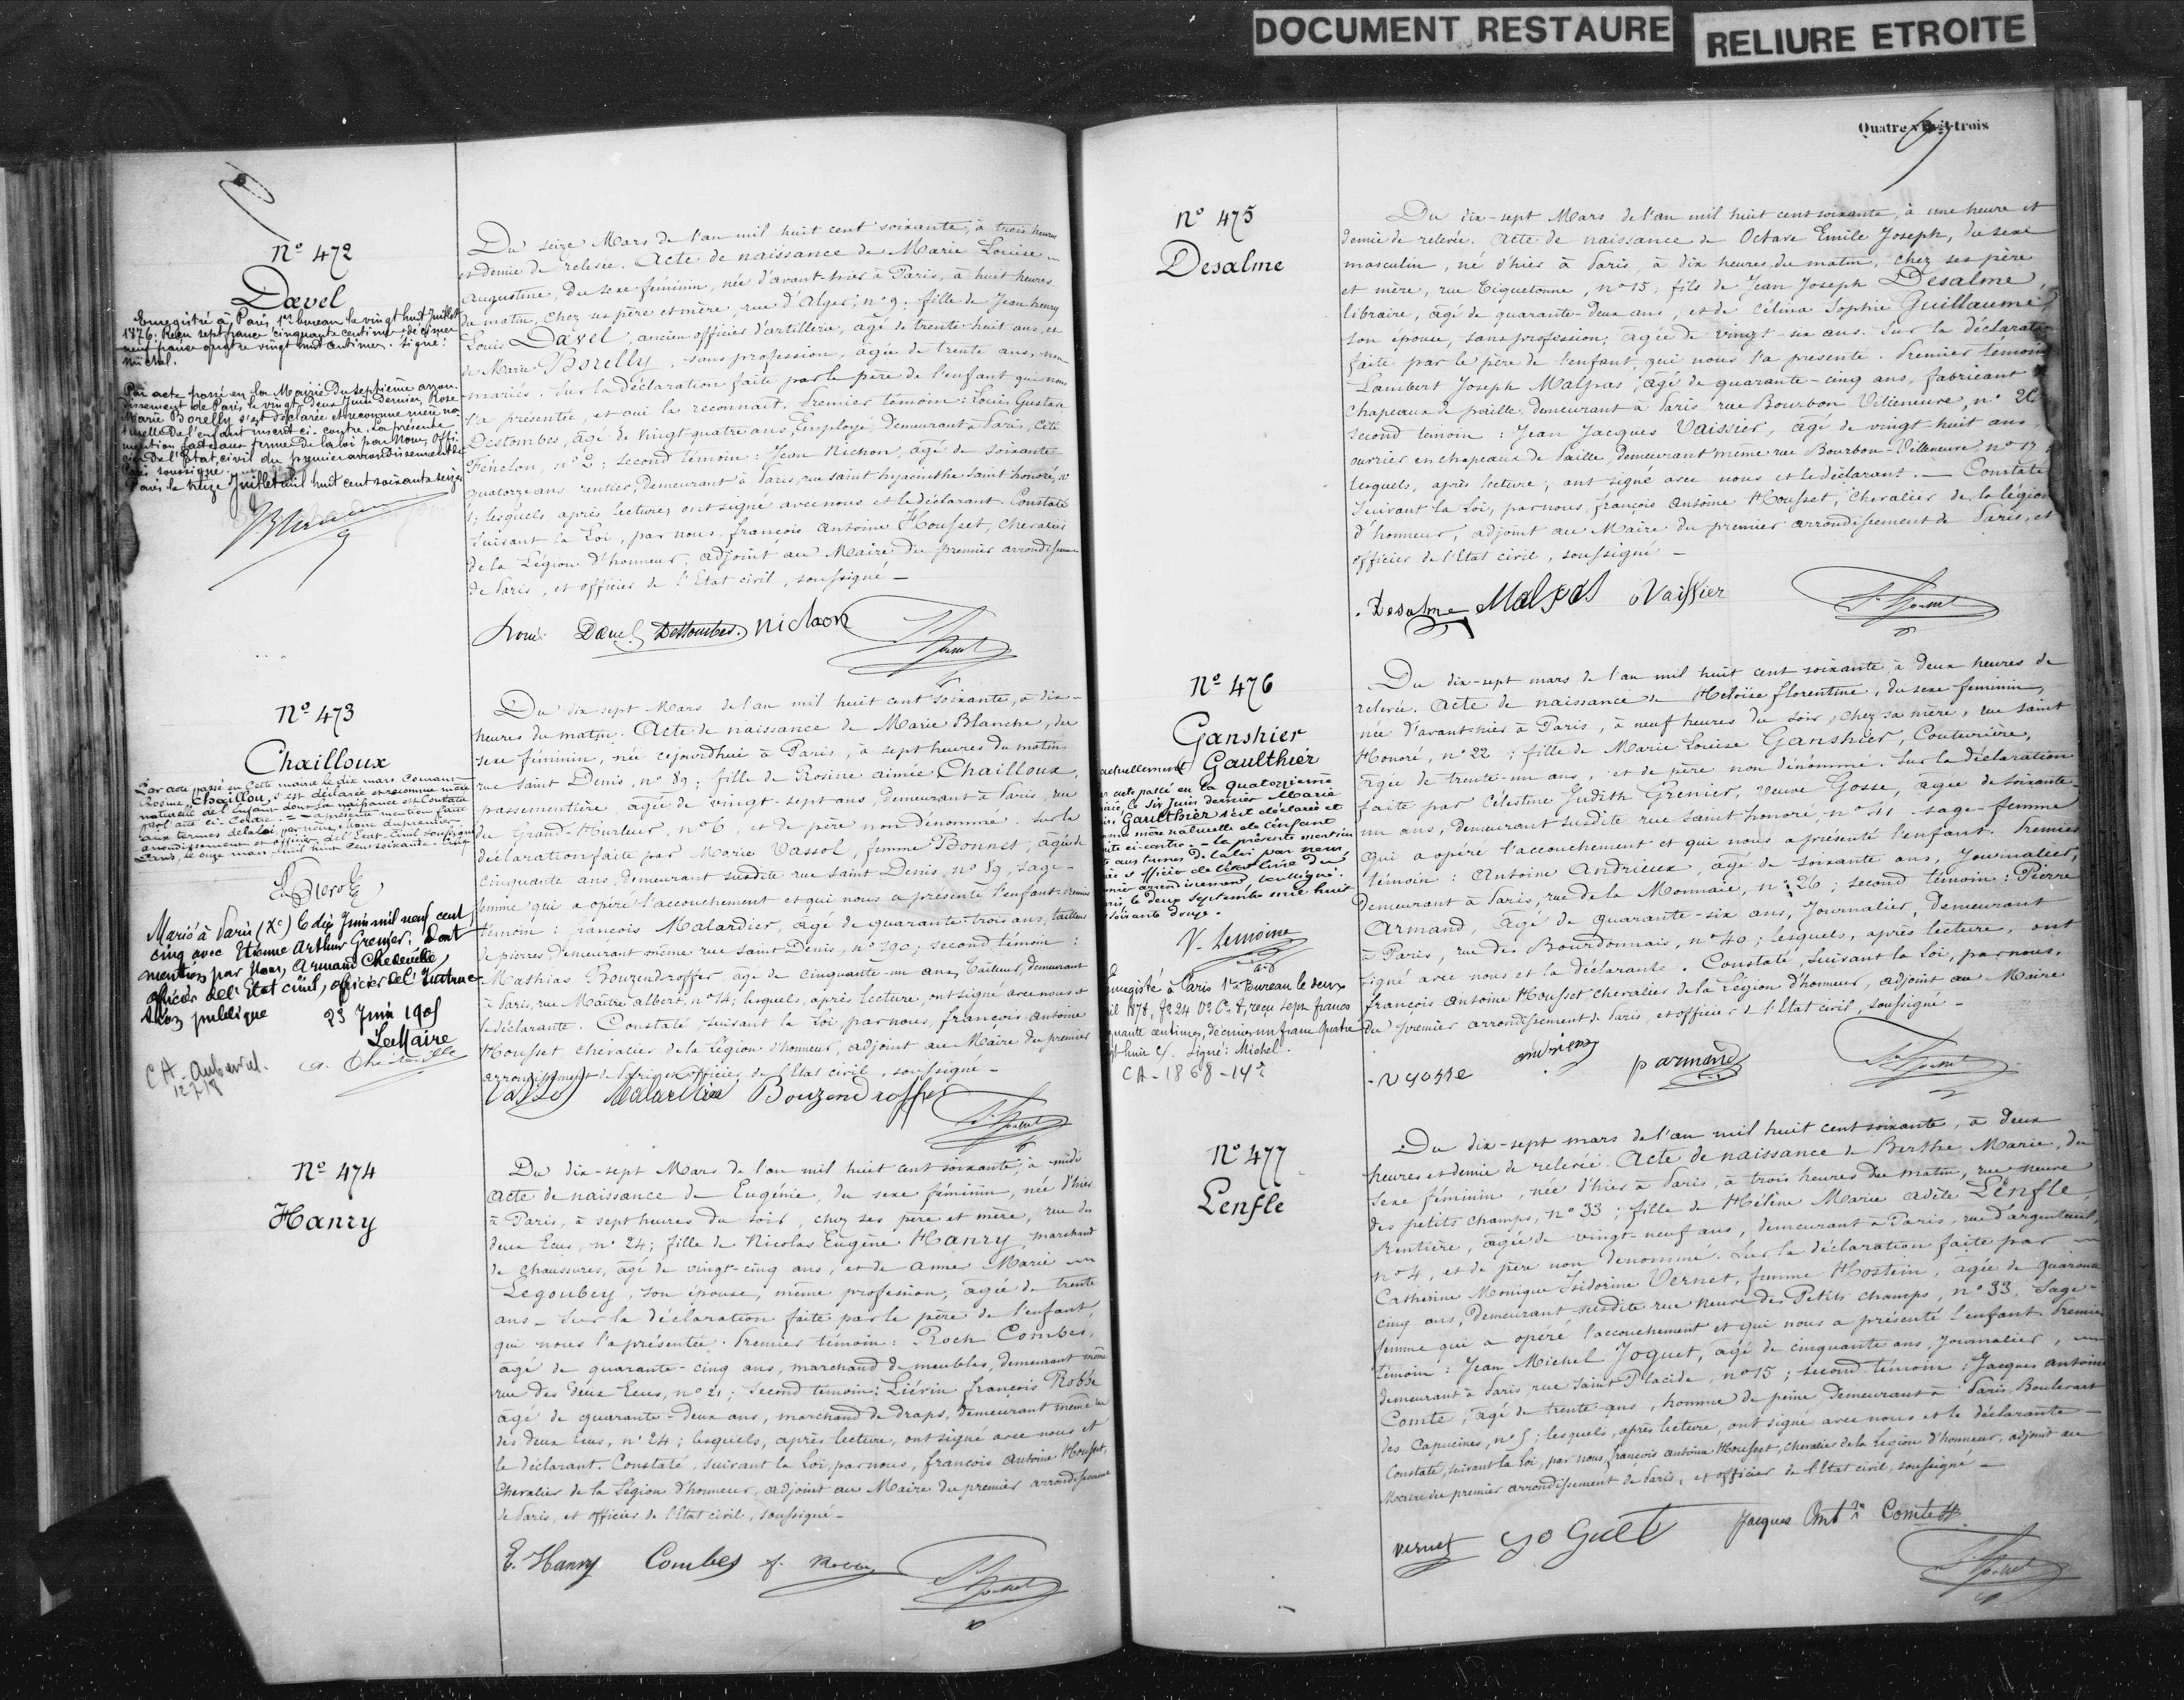 DOCUMENT RESTAURE
RELIURE ETROITE
Nº 472
Davel
Enregistré à Paris, 1er bureau le vingt huit Juillet
1876. Reçu sept francs cinquante centimes décimes
quatre vingt huit centimes. Signé:
Michel.
Par acte passé en la Mairie du septième arron-
dissement de Paris le vingt deux Juin dernier, Rose
Marie Borelly s'est déclarée et reconnue mère na-
turelle de l'enfant inscrit ci-contre. La présente
mention faite aux termes de la loi par Nous, offi-
cier de l'Etat civil du premier arrondissement de
Paris soussigné.
Paris le treize Juillet mil huit cent soixante seize
Du seize Mars de l'an mil huit cent soixante, à trois heures
et demie de relevée. Acte de naissance de Marie Louise
Augustine, du sexe féminin, née d'avant-hier à Paris, à huit heures
du matin, chez ses père et mère, rue d'Alger, nº 9; fille de Jean henry
Louis Davel, ancien officier d'artillerie, âgé de trente huit ans, et
de Marie Borelly, sans profession, âgée de trente ans, non
mariés. Sur la déclaration faite par le père de l'enfant qui nous
l'a présentée, et qui la reconnait. Premier témoin: Louis Gustave
Destombes, âgé de vingt quatre ans, Employé, demeurant à Paris, Cité
Fénelon, nº 2; second témoin: Jean Nichon, âgé de soixante-
quatorze ans rentier, demeurant à Paris, rue saint hyacinthe saint honoré, nº
1; lesquels après lecture, ont signé avec nous et le déclarant. Constaté
suivant la Loi, par nous, françois Antoine Housset, chevalier
de la Légion d'honneur, adjoint au Maire du premier arrondissement
de Paris, et officier de l'Etat civil, soussigné –
Davel Destombes nichon
Nº 473
Chailloux
Par acte passé en cette mairie le dix mars courant
Rosine Chaillou, s'est déclarée et reconnue mère
naturelle de l'enfant dont la naissance est Constatée
par l'acte ci-contre. – La présente mention faite
aux termes de la loi, par nous, maire du premier
arrondissement et officier de l'Etat-Civil soussigné
Paris, le onze mars mil huit Cent soixante-cinq
Marié à Paris (Xe) le dix Juin mil neuf cent
cinq avec Etienne Arthur Grenier. Dont
mention par Nous, Armand
officier de l'Etat civil, officier de l'Instruc-
tion publique
23 Juin 1905
Le Maire
Du dix-sept Mars de l'an mil huit cent soixante, à dix
heures du matin. Acte de naissance de Marie Blanche, du
sexe féminin, née cejourd'hui à Paris, à sept heures du matin,
rue Saint Denis, nº 89; fille de Rosine aimée Chailloux,
passementière âgée de vingt-sept ans, demeurant à Paris, rue
du Grand-Hurleur, nº 6, et de père non dénommé. Sur la
déclaration faite par Marie Vassol, femme Bonnet, âgée de
cinquante ans, demeurant susdite rue saint Denis, nº 89, sage-
femme qui a opéré l'accouchement et qui nous a présenté l'enfant. Premier
témoin: françois Malardier, âgé de quarante-trois ans, tailleur
de pierres demeurant même rue saint Denis, nº 190; second témoin:
Mathias Bouzendroffer, âgé de cinquante-un ans, Tailleur, demeurant
à Paris, rue Maître albert, nº 14; lesquels, après lecture, ont signé avec nous et
la déclarante. Constaté, suivant la Loi, par nous, françois antoine
Housset, chevalier de la Légion d'honneur, adjoint au Maire du premier
arrondissement de Paris et officier de l'Etat civil, soussigné –
Malardier Bouzendroffer
Nº 474
Hanry
Du dix-sept Mars de l'an mil huit cent soixante, à midi
Acte de naissance de Eugénie, du sexe féminin, née d'hier
à Paris, à sept heures du soir, chez ses père et mère, rue des
deux Ecus, nº 24; fille de Nicolas Eugène Hanry, marchand
de chaussures, âgé de vingt-cinq ans, et de anne Marie
Legoubey, son épouse, même profession, âgée de trente
ans – Sur la déclaration faite par le père de l'enfant
qui nous l'a présentée. Premier témoin: Roch Combes,
âgé de quarante-cinq ans, marchand de meubles, demeurant même
rue des deux Ecus, nº 21; second témoin: Liévin françois Robbe
âgé de quarante-deux ans, marchand de draps, demeurant même rue
des deux Ecus, nº 24; lesquels, après lecture, ont signé avec nous et
le déclarant. Constaté, suivant la Loi, par nous, françois Antoine Housset,
Chevalier de la Légion d'honneur, adjoint au Maire du premier arrondissement
de Paris, et officier de l'Etat civil, soussigné –
E. Hanry Combes
Quatre vingt trois
Nº 475
Desalme
Du dix-sept Mars de l'an mil huit cent soixante, à une heure et
demie de relevée. Acte de naissance de Octave Emile Joseph, du sexe
masculin, né d'hier à Paris, à dix heures du matin, chez ses père
et mère, rue Tiquetonne, nº 15; fils de Jean Joseph Desalme,
libraire, âgé de quarante-deux ans, et de Célina Sophie Guillaume,
son épouse, sans profession, âgée de vingt-six ans. Sur la déclaration
faite par le père de l'enfant, qui nous l'a présenté. Premier témoin
Lambert Joseph Malpas, âgé de quarante-cinq ans, fabricant de
chapeaux de paille, demeurant à Paris rue Bourbon Villeneuve, nº 26
second témoin: Jean Jacques Vaissier, âgé de vingt huit ans,
ouvrier en chapeaux de Paille, demeurant même rue Bourbon-Villeneuve, nº 17,
lesquels, après lecture, ont signé avec nous et le déclarant. – Constaté
suivant la Loi, par nous, françois Antoine Housset, Chevalier de la légion
d'honneur, adjoint au Maire du premier arrondissement de Paris, et
officier de l'Etat civil, soussigné –
Desalme Malpas Vaissier
Nº 476
Ganshier
actuellement Gaulthier
acte passé en la quatorzième
le six Juin dernier Marie
Gaulthier s'est déclarée et
mère naturelle de l'enfant
ci-contre. – la présente mention
aux termes de la loi par nous,
officier de l'état civil du
arrondissement soussigné.
le deux septembre mil huit
soixante douze.
V. Lemoine
Enregistré à Paris 1er Bureau le deux
1878, fº 24 Vº Cº 7, reçu sept francs
quante centimes, décimes un franc quatre
huit c/. Signé: Michel.
CA-1868-14e
Du dix-sept mars de l'an mil huit cent soixante, à deux heures de
relevée. Acte de naissance de Héloïse florentine, du sexe féminin,
née d'avant-hier à Paris, à neuf heures du soir, chez sa mère, rue saint
Honoré, nº 22; fille de Marie Louise Ganshier, Couturière,
âgée de trente-un ans, et de père non dénommé. Sur la déclaration
faite par Célestine Judith Grenier, veuve Gosse, âgée de soixante-
un ans, demeurant susdite rue saint honoré, nº 41 sage-femme
qui a opéré l'accouchement et qui nous a présenté l'enfant. Premier
témoin: Antoine Andrieux, âgé de soixante ans, Journalier,
demeurant à Paris, rue de la Monnaie, nº 26; second témoin: Pierre
Armand, âgé de quarante-six ans, Journalier, demeurant
à Paris, rue des Bourdonnais, nº 40; lesquels, après lecture, ont
signé avec nous et la déclarante. Constaté, suivant la Loi, par nous,
françois antoine Housset chevalier de la Légion d'honneur, adjoint au Maire
du premier arrondissement de Paris, et officier de l'Etat civil, soussigné –
parmand
Nº 477
Lenfle
Du dix-sept mars de l'an mil huit cent soixante, à deux
heures et demie de relevée. Acte de naissance de Berthe Marie, du
sexe féminin, née d'hier à Paris, à trois heures du matin, rue neuve
des petits champs, nº 33; fille de Hélène Marie adèle Lenfle,
Rentière, âgée de vingt-neuf ans, demeurant à Paris, rue d'argenteuil,
nº 4, et de père non dénommé. Sur la déclaration faite par
Catherine Monique Isidorine Vernet, femme Hostein, âgée de quarante
cinq ans, demeurant susdite rue neuve des Petits champs, nº 33, Sage-
femme qui a opéré l'accouchement et qui nous a présenté l'enfant. Premier
témoin: Jean Michel Joguet, âgé de cinquante ans, Journalier,
demeurant à Paris, rue saint Placide, nº 15; second témoin: Jacques antoine
Comte, âgé de trente ans, homme de peine demeurant à Paris, Boulevart
des Capucines, nº 5; lesquels, après lecture, ont signé avec nous et la déclarante
Constaté, suivant la Loi, par nous, françois antoine Housset, chevalier de la Légion d'honneur, adjoint au
Maire du premier arrondissement de Paris, et officier de l'Etat civil, soussigné –
vernet JoGuet Jacques Ant Comte